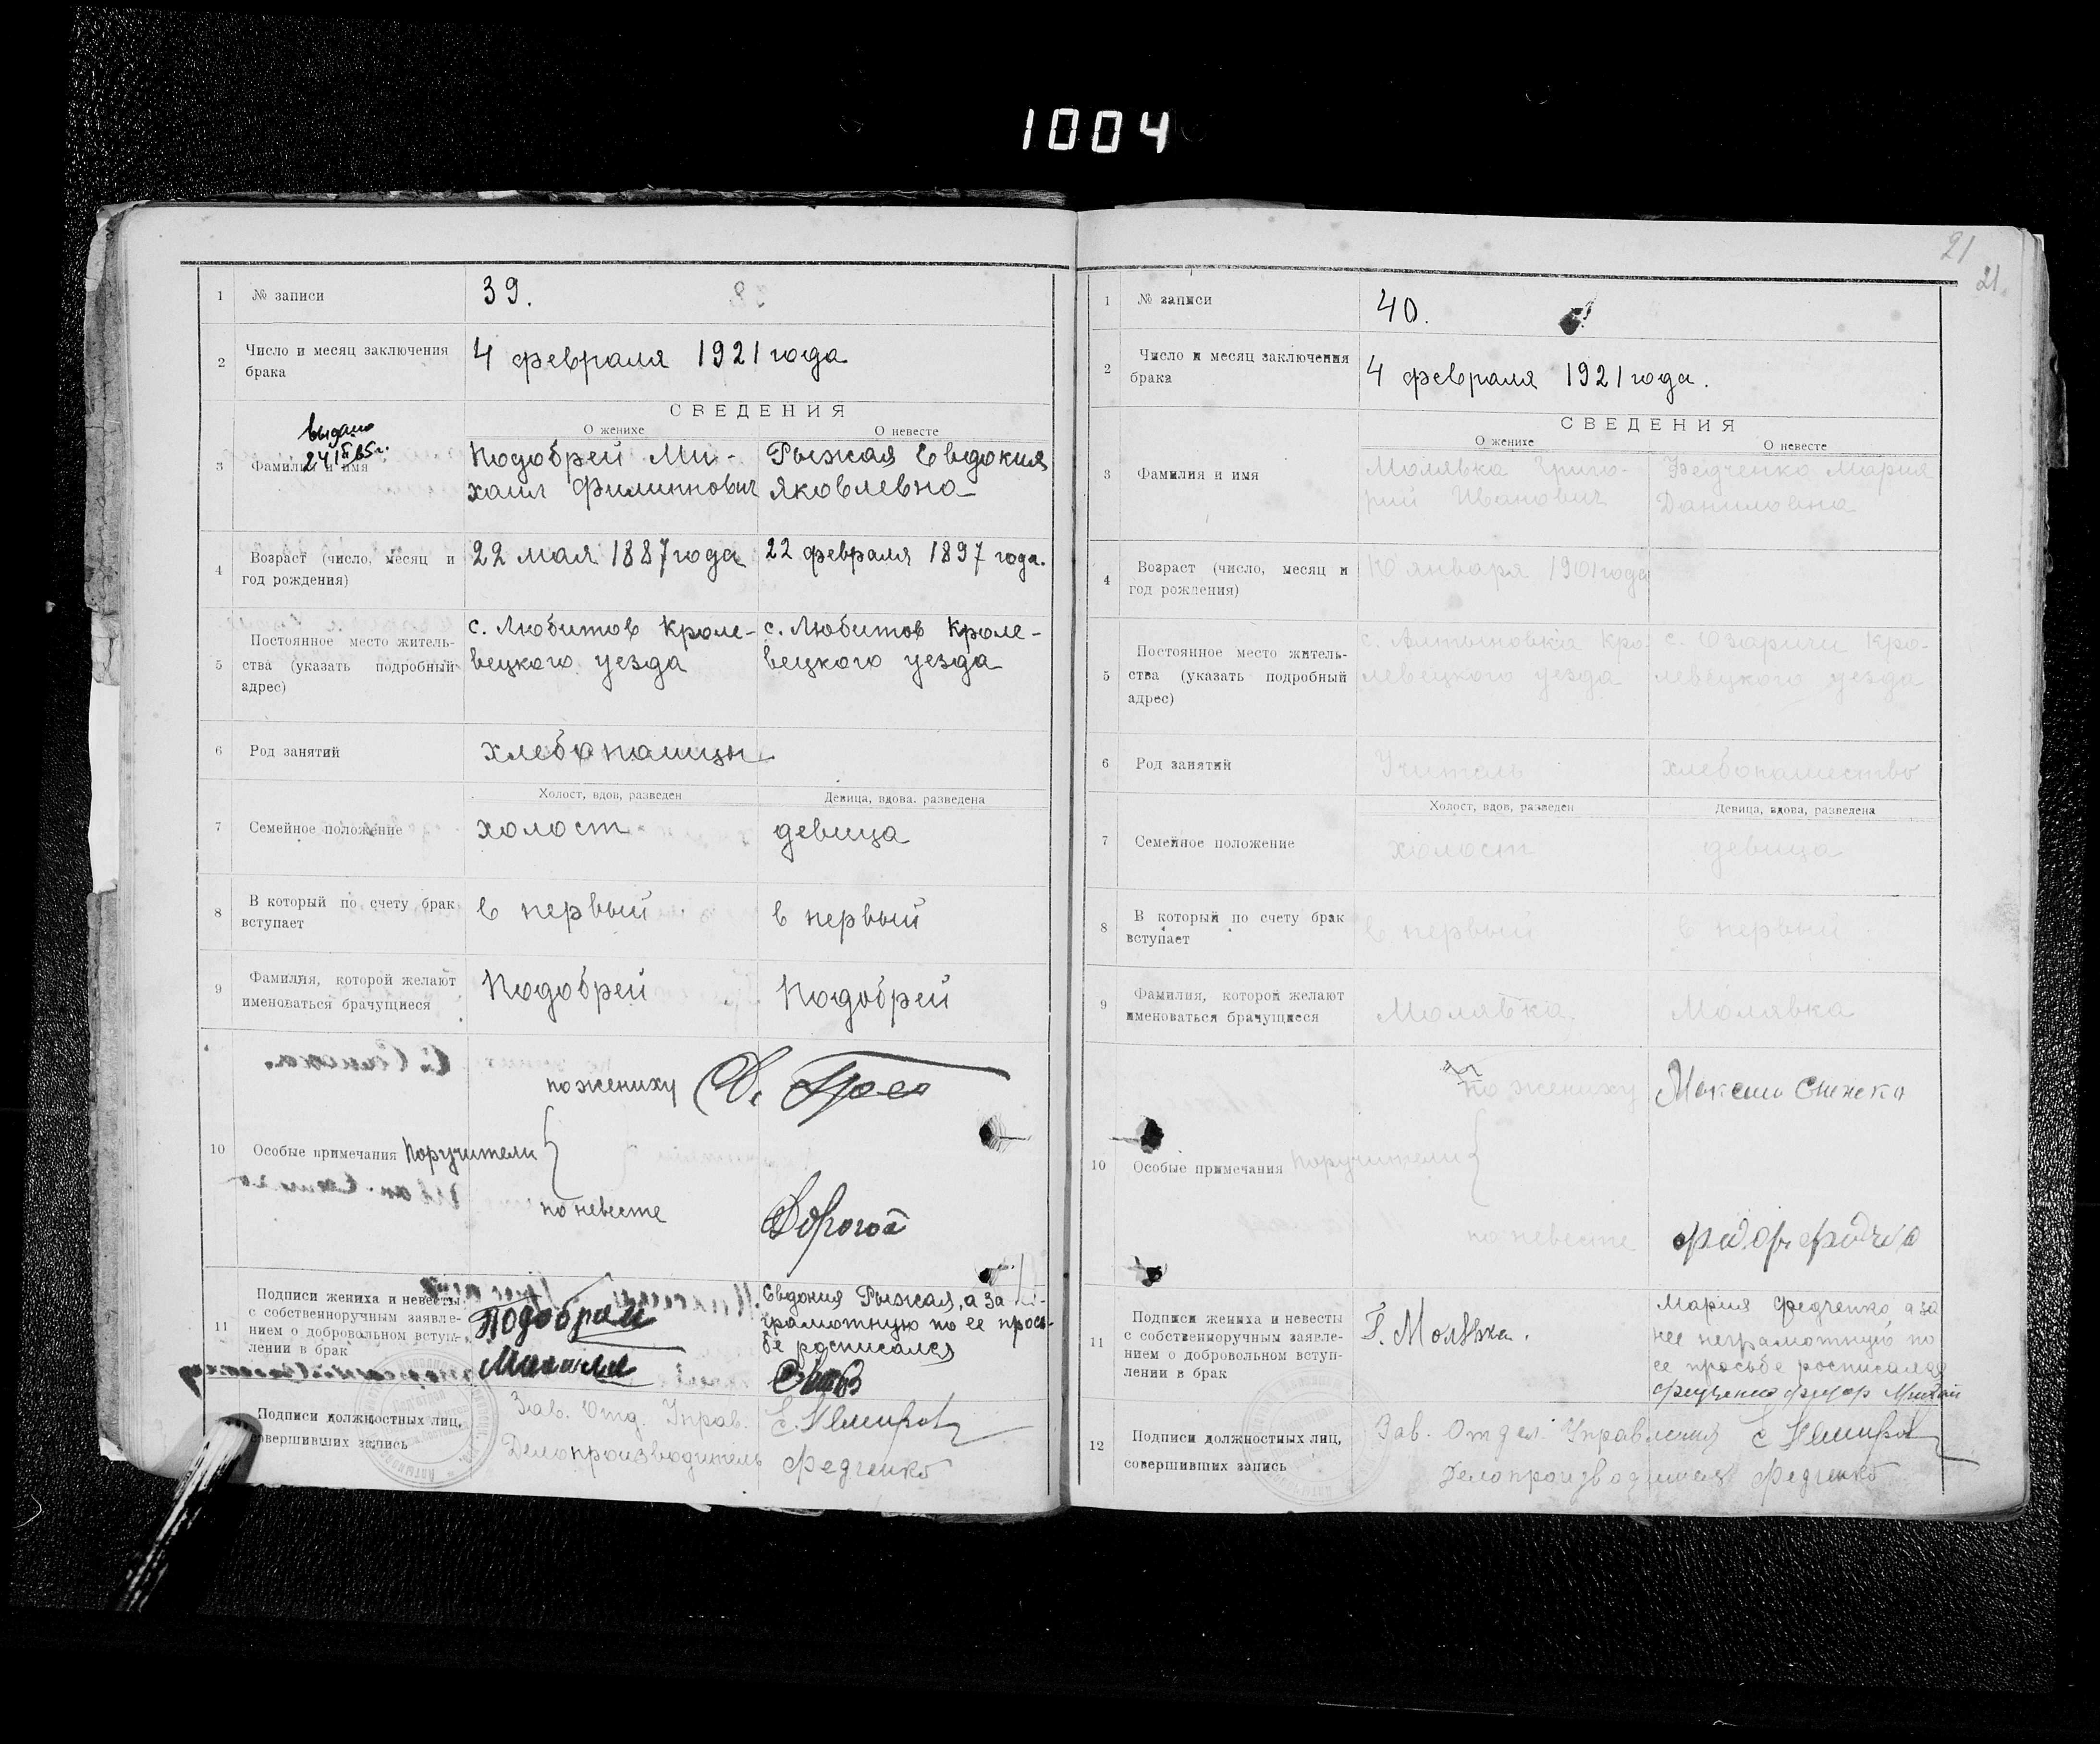 1004
1 № записи 39.
2 Число и месяц заключения брака
4 февраля 1921 года
СВЕДЕНИЯ
О женихе О невесте
выдано
3 Фамилия и имя
Подобрей Ми- Рыжая Евдокия
хаил Филиппович Яковлевна
4 Возраст (число, месяц и год рождения)
22 мая 1887 года 22 февраля 1897 года.
5 Постоянное место житель-
ства (указать подробный
адрес)
с. Любитов Кроле- с. Любитов Кроле-
вецкого уезда вецкого уезда
6 Род занятий хлебопашцы
Холост, вдов, разведен Девица, вдова, разведена
7 Семейное положение холост девица
8 В который по счету брак
вступает
в первый в первый
9 Фамилия, которой желают
именоваться брачущиеся
Подобрей Подобрей
по жениху
10 Особые примечания Поручители
по невесте Дорогой
11 Подписи жениха и невесты
с собственноручным заявле-
нием о добровольном вступ-
лении в брак
Евдокия Рыжая, а за
грамотную по ее прось-
бе росписался
Подписи должностных лиц,
совершивших запись
Зав. Отд. Управ.
Делопроизводитель Федченко
21
21.
1 № записи 40.
2 Число и месяц заключения
брака
4 февраля 1921 года.
СВЕДЕНИЯ
О женихе О невесте
3 Фамилия и имя
Молявка Григо- Федченко Мария
рий Иванович Даниловна
4 Возраст (число, месяц и
год рождения)
10 января 1901 года
5 Постоянное место житель-
ства (указать подробный
адрес)
с Алтыновка Кро- с Озаричи Кро-
левецкого уезда левецкого уезда
6 Род занятий Учитель хлебопашество
Холост, вдов, разведен Девица, вдова, разведена
7 Семейное положение холост девица
8 В который по счету брак
вступает
в первый в первый
9 Фамилия, которой желают
именоваться брачущиеся
Молявка Молявка
по жениху
10 Особые примечания Поручители
по невесте
11 Подписи жениха и невесты
с собственноручным заявле-
нием о добровольном вступ-
лении в брак
Г. Молявка.
Мария Федченко а за
нее неграмотную по
ее просьбе росписался
12 Подписи должностных лиц,
совершивших запись
Зав. Отдел. Управления
Делопроизводитель Федченко